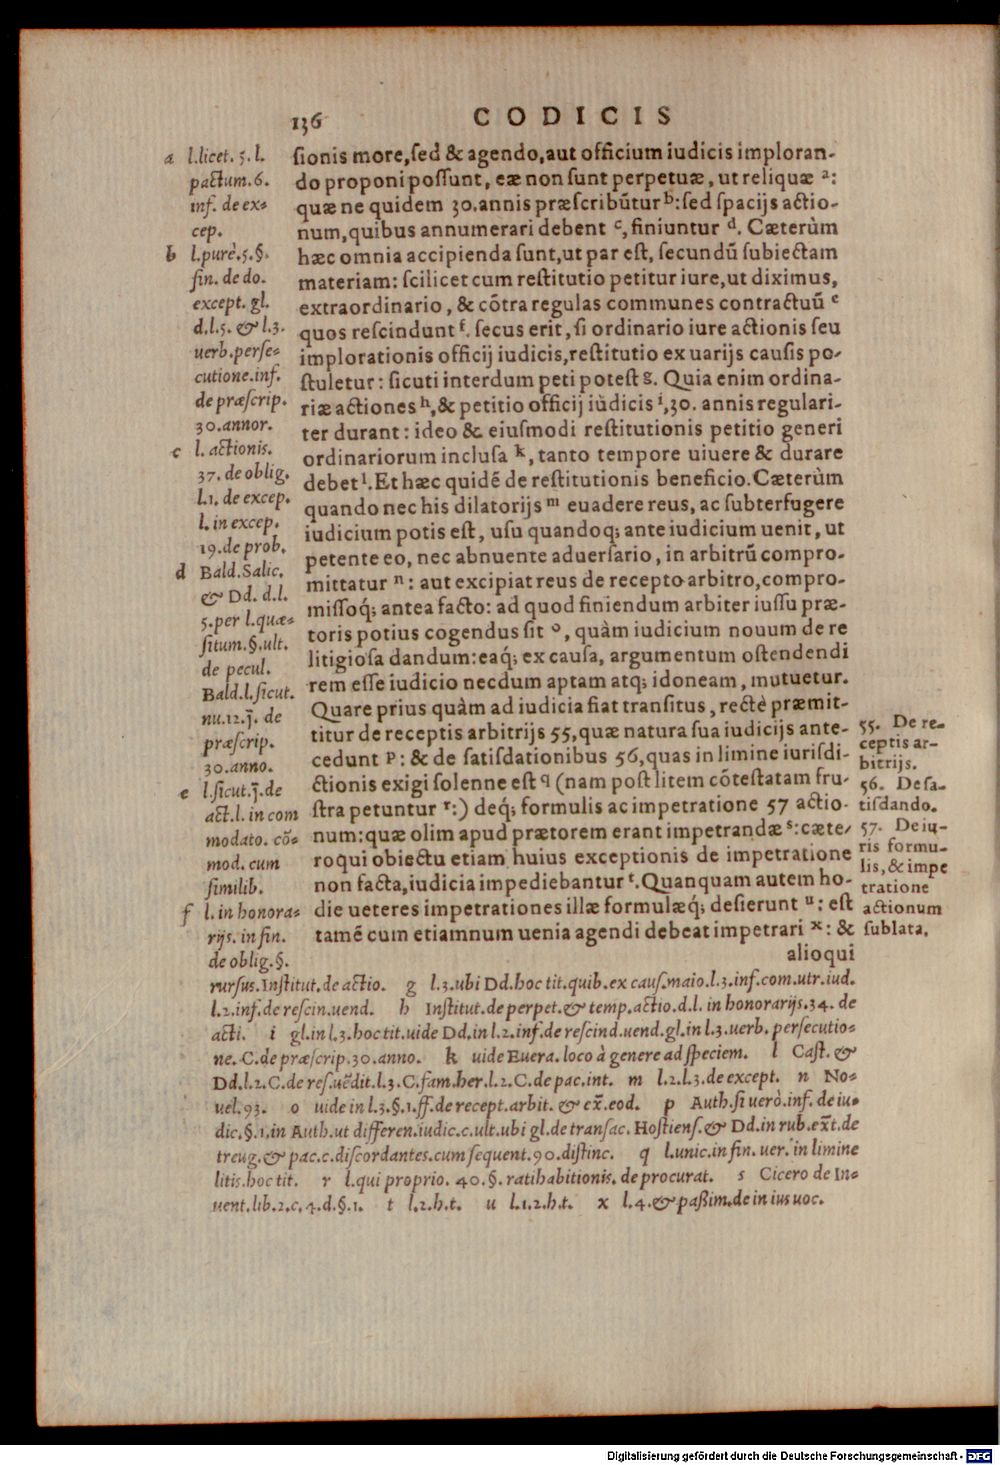 136
CODICIS
ſionis more,ſed & agendo,aut officium iudicis imploran-
do proponi poſſunt, eæ non ſunt perpetuæ, ut reliquæ ᵃ:
quæ ne quidem 30.annis præſcribũtur ᵇ:ſed ſpacijs actio-
num,quibus annumerari debent ᶜ, finiuntur ᵈ. Cæterùm
hæc omnia accipienda ſunt,ut par eſt, ſecundũ ſubiectam
materiam: ſcilicet cum reſtitutio petitur iure,ut diximus,
extraordinario, & cõtra regulas communes contractuũ ᵉ
quos reſcindunt ᶠ. ſecus erit, ſi ordinario iure actionis ſeu
implorationis officij iudicis,reſtitutio ex uarijs cauſis po-
ſtuletur: ſicuti interdum peti poteſt ᵍ. Quia enim ordina-
riæ actiones ʰ,& petitio officij iudicis ⁱ,30. annis regulari-
ter durant: ideo & eiuſmodi reſtitutionis petitio generi
ordinariorum incluſa ᵏ, tanto tempore uiuere & durare
debet ˡ. Et hæc quidẽ de reſtitutionis beneficio. Cæterùm
quando nec his dilatorijs ᵐ euadere reus, ac ſubterfugere
iudicium potis eſt, uſu quandoq; ante iudicium uenit, ut
petente eo, nec abnuente aduerſario, in arbitrũ compro-
mittatur ⁿ: aut excipiat reus de recepto arbitro,compro-
miſſoq́; antea facto: ad quod finiendum arbiter iuſſu præ-
toris potius cogendus ſit ᵒ, quàm iudicium nouum de re
litigioſa dandum:eaq́; ex cauſa, argumentum oſtendendi
rem eſſe iudicio necdum aptam atq; idoneam, mutuetur.
Quare prius quàm ad iudicia fiat tranſitus, rectè præmit-
titur de receptis arbitrijs 55,quæ natura ſua iudicijs ante-
cedunt ᵖ: & de ſatiſdationibus 56,quas in limine iuriſdi-
ctionis exigi ſolenne eſt q (nam poſt litem cõteſtatam fru-
ſtra petuntur ʳ:) deq́; formulis ac impetratione 57 actio-
num:quæ olim apud prætorem erant impetrandæ ˢ:cæte-
roqui obiectu etiam huius exceptionis de impetratione
non facta,iudicia impediebantur ᵗ. Quanquam autem ho-
die ueteres impetrationes illæ formulæq́; deſierunt ᵘ: eſt
tamẽ cum etiamnum uenia agendi debeat impetrari ˣ: &
alioqui
a l.licet. 5. l.
pactum.6.
inf. de ex-
cep.
b l.purè.5.§.
fin. de do.
except. gl.
d.l.5. & l.3.
uerb.perſe-
cutione.inf.
de præſcrip.
30.annor.
c l. actionis.
37. de oblig.
l.1. de excep.
l. in excep.
19.de prob.
d Bald.Salic.
& Dd. d.l.
5.per l.quæ-
ſitum.§.ult.
de pecul.
Bald.l.ſicut.
nu.12.J̃. de
præſcrip.
30.anno.
e l.ſicut.J̃.de
act.l. in com
modato. cõ-
mod. cum
ſimilib.
f l. in honora-
rijs. in fin.
de oblig.§.
55. De re-
ceptis ar-
bitrijs.
56. De ſa-
tiſdando.
57. De iu-
ris formu-
lis, & impe
tratione
actionum
ſublata.
rurſus.Inſtitut.de actio. g l.3.ubi Dd.hoc tit.quib.ex cauſ.maio.l.3.inf.com.utr.iud.
l.2.inf.de reſcin.uend. h Inſtitut.de perpet.& temp.actio.d.l. in honorarijs.34. de
acti. i gl.in l.3.hoc tit.uide Dd.in l.2.inf.de reſcind.uend.gl.in l.3.uerb. perſecutio-
ne. C.de præſcrip.30.anno. k uide Euera. loco à genere ad ſpeciem. l Caſt. &
Dd.l.2.C.de reſ.uẽdit.l.3.C.fam.her.l.2.C.de pac.int. m l.2.l.3.de except. n No-
uel.93. o uide in l.3.§.1.ff.de recept.arbit. & ex̃.eod. p Auth.ſi uerò.inf. de iu-
dic.§.1.in Auth.ut differen.iudic.c.ult.ubi gl.de tranſac. Hoſtienſ.& Dd.in rub.ex̃t.de
treug.& pac.c.diſcordantes.cum ſequent.90.diſtinc. q l.unic.in fin. uer. in limine
litis.hoc tit. r l.qui proprio. 40.§. ratihabitionis. de procurat. s Cicero de In-
uent.lib.2.c.4.d.§.1. t l.2.h.t. u l.1.2.h.t. x l.4.& paßim.de in ius uoc.
Digitalisierung gefördert durch die Deutsche Forschungsgemeinschaft - DFG